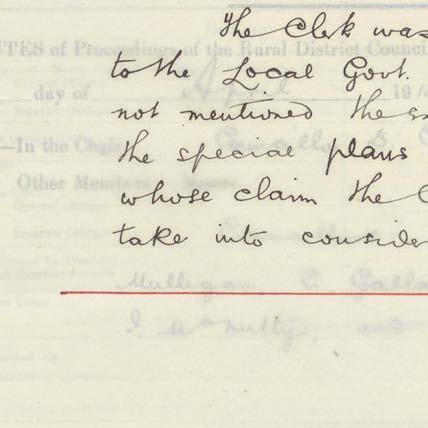 The Clerk was
to the Local Govt.
not mentioned the
the special plans
whose claim the
take into consider
MINUTES of Proceedings of the Rural District Counci
day of April 191
—In the Chair
Other Mem
Mulligan, C. Galla
J. McNulty, and